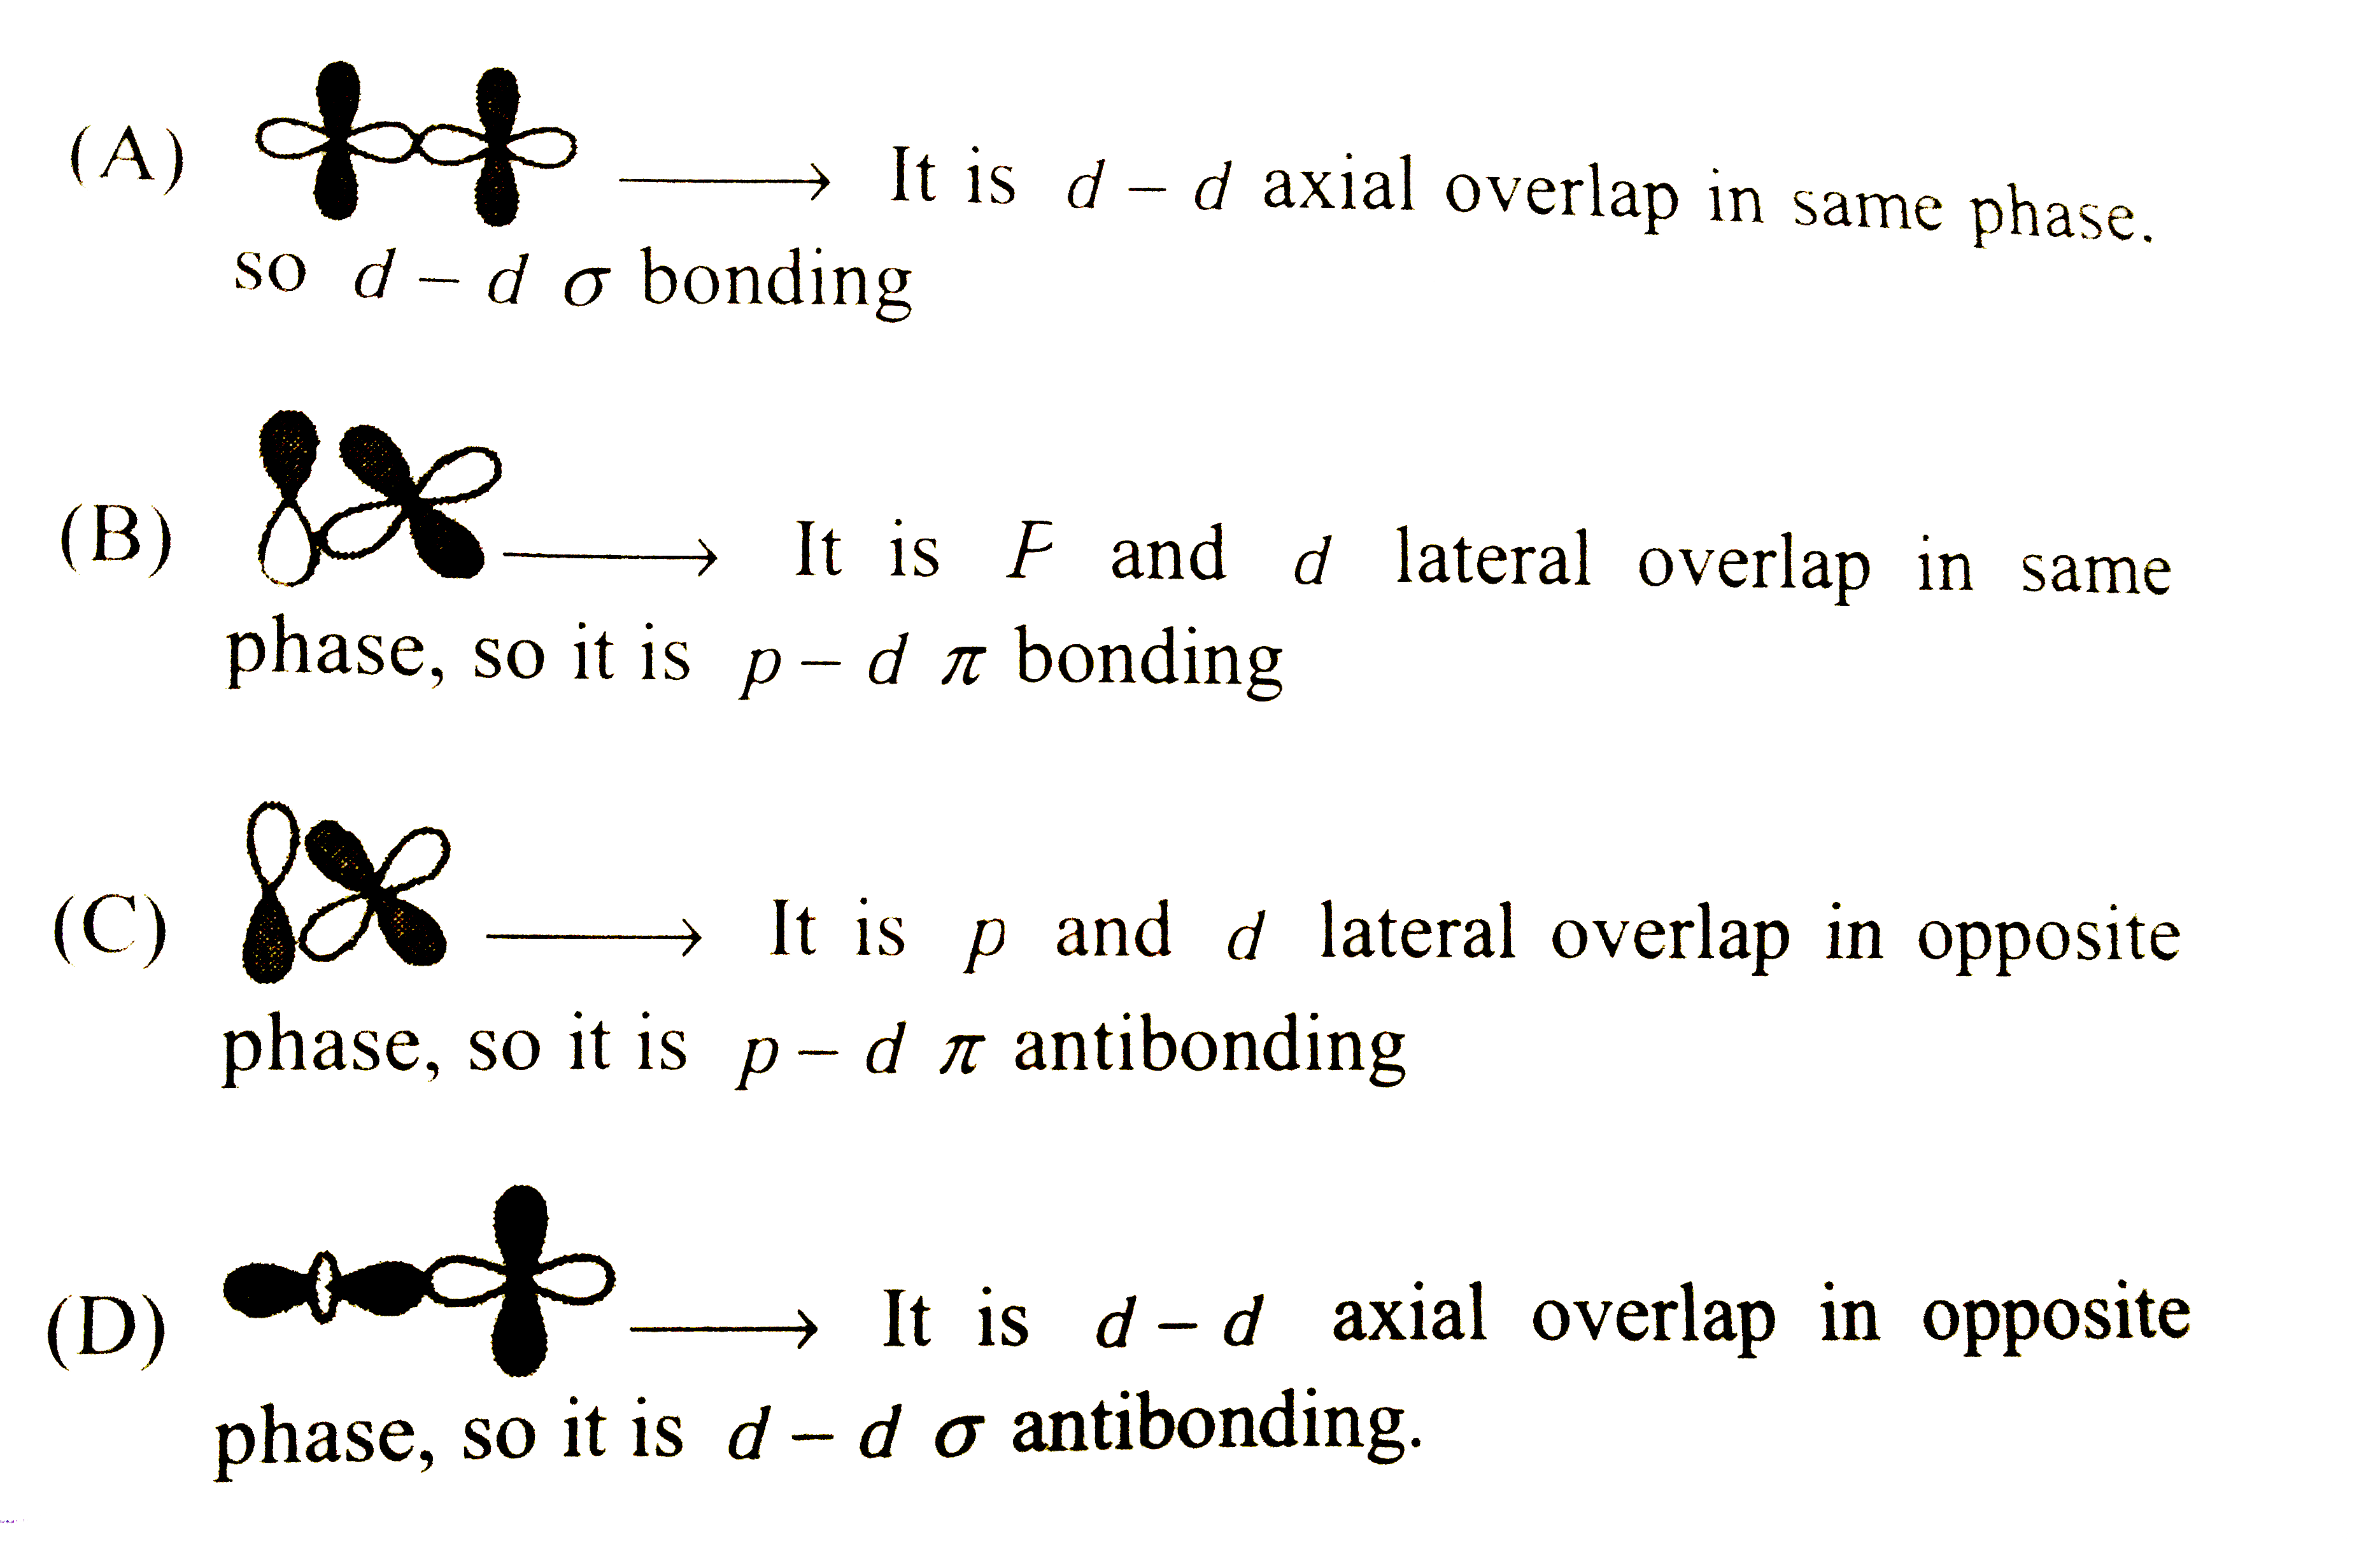 (A) It is d – d axial overlap in same phase.
so d – d σ bonding
(B) It is F and d lateral overlap in same
phase, so it is p – d π bonding
(C) It is p and d lateral overlap in opposite
phase, so it is p – d π antibonding
(D) It is d – d axial overlap in opposite
phase, so it is d – d σ antibonding.